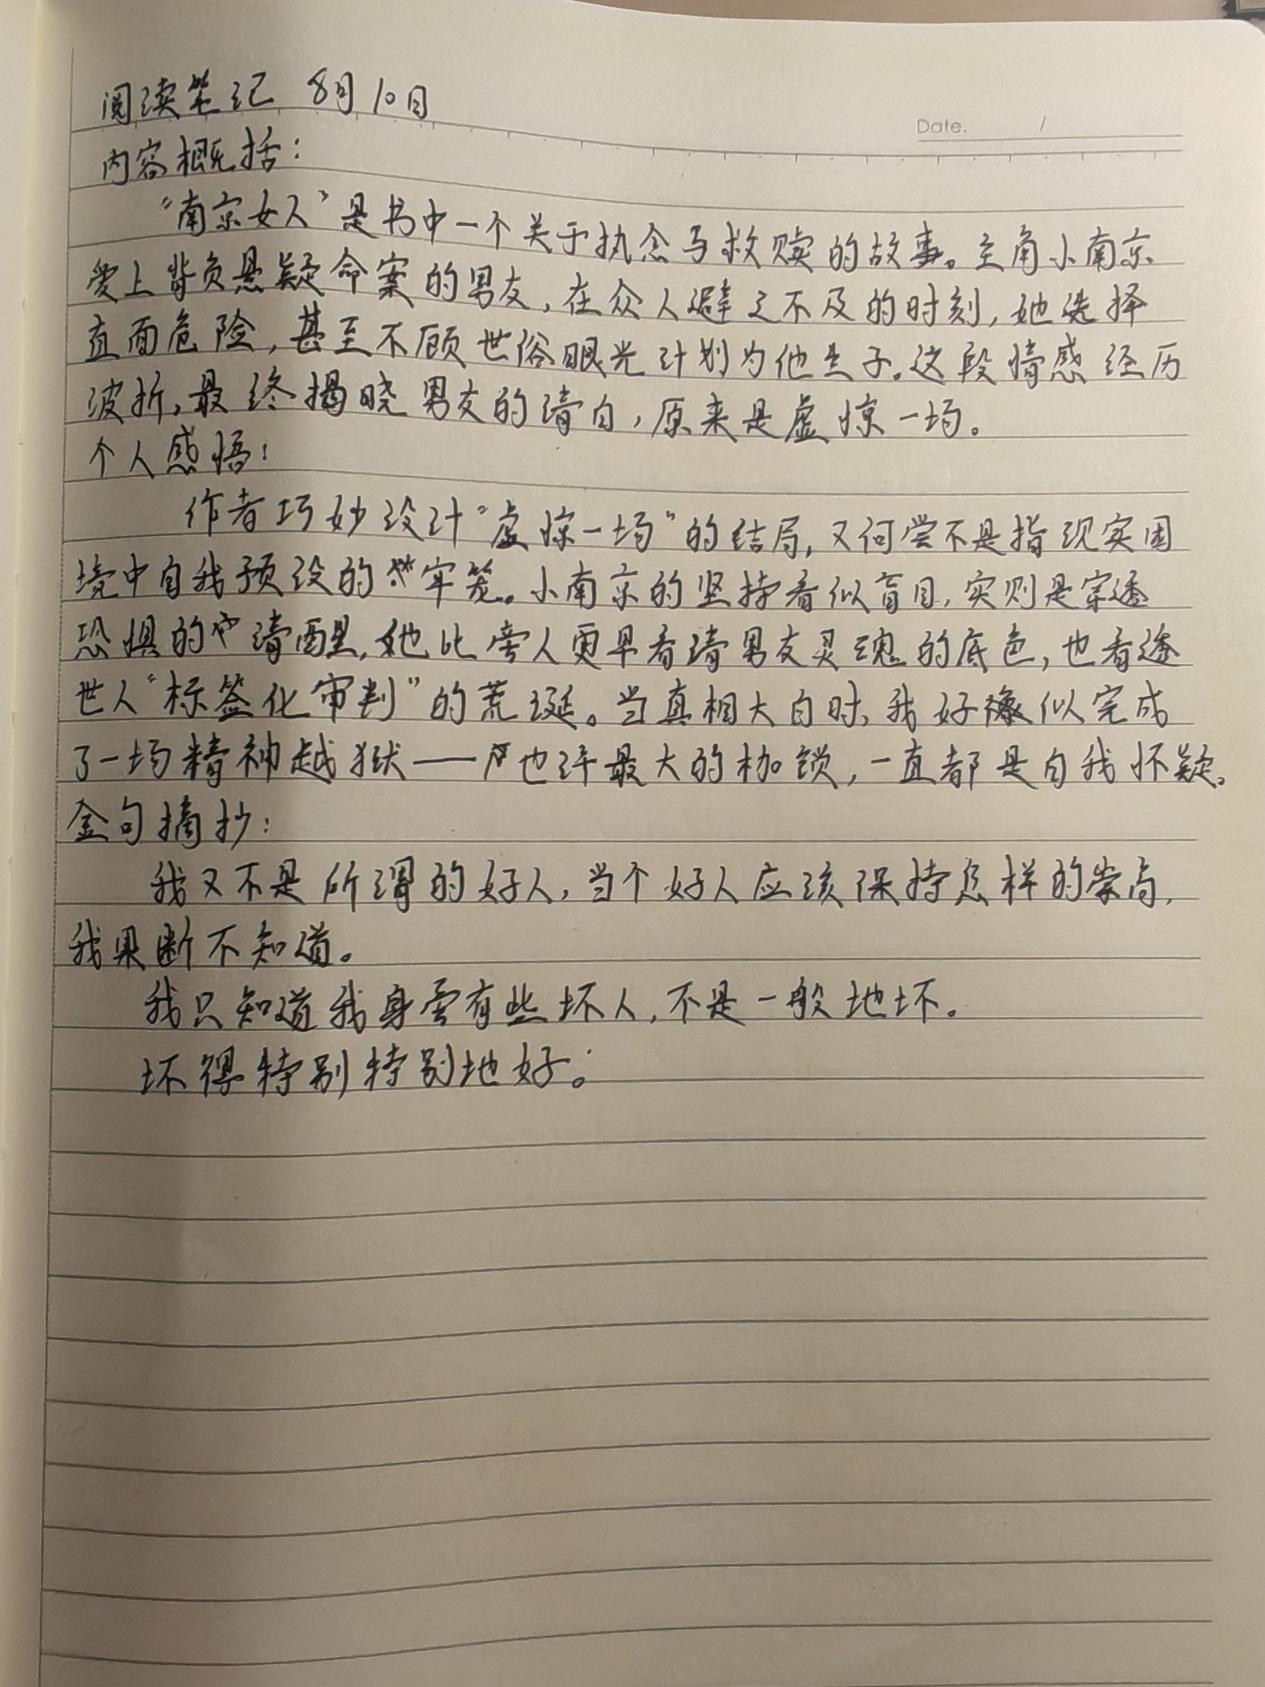 阅读笔记 8月10日
Date. /
内容概括：
“南京女人”是书中一个关于执念与救赎的故事。主角小南京
爱上背负悬疑命案的男友，在众人避之不及的时刻，她选择
直面危险，甚至不顾世俗眼光计划为他生子。这段情感经历
波折，最终揭晓男友的清白，原来是虚惊一场。
个人感悟：
作者巧妙设计“虚惊一场”的结局，又何尝不是指现实困
境中自我预设的牢笼。小南京的坚持看似盲目，实则是穿透
恐惧的清醒，她比旁人更早看清男友灵魂的底色，也看透
世人“标签化审判”的荒诞。当真相大白时，我好像似完成
了一场精神越狱——也许最大的枷锁，一直都是自我怀疑。
金句摘抄：
我又不是所谓的好人，当个好人应该保持怎样的崇高，
我果断不知道。
我只知道我身旁有些坏人，不是一般地坏。
坏得特别特别地好。